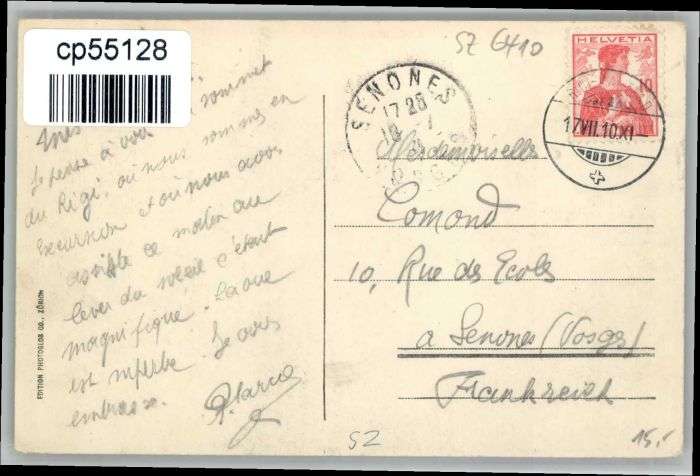 cp55128
SZ 6410
HELVETIA
10
17VII.10.XI-
SENONES
17 28
18
Mes
sommet
Je pense à vous
du Rigi, où nous sommes en
excursion et où nous avons
assisté ce matin au
lever du soleil c'était
magnifique. La vue
est superbe. Je vous
embrasse.
Mesdemoiselles
Comond
10, Rue des Ecoles
a Senones (Vosges)
Frankreich
EDITION PHOTOGLOB CO., ZÜRICH
SZ
15,-